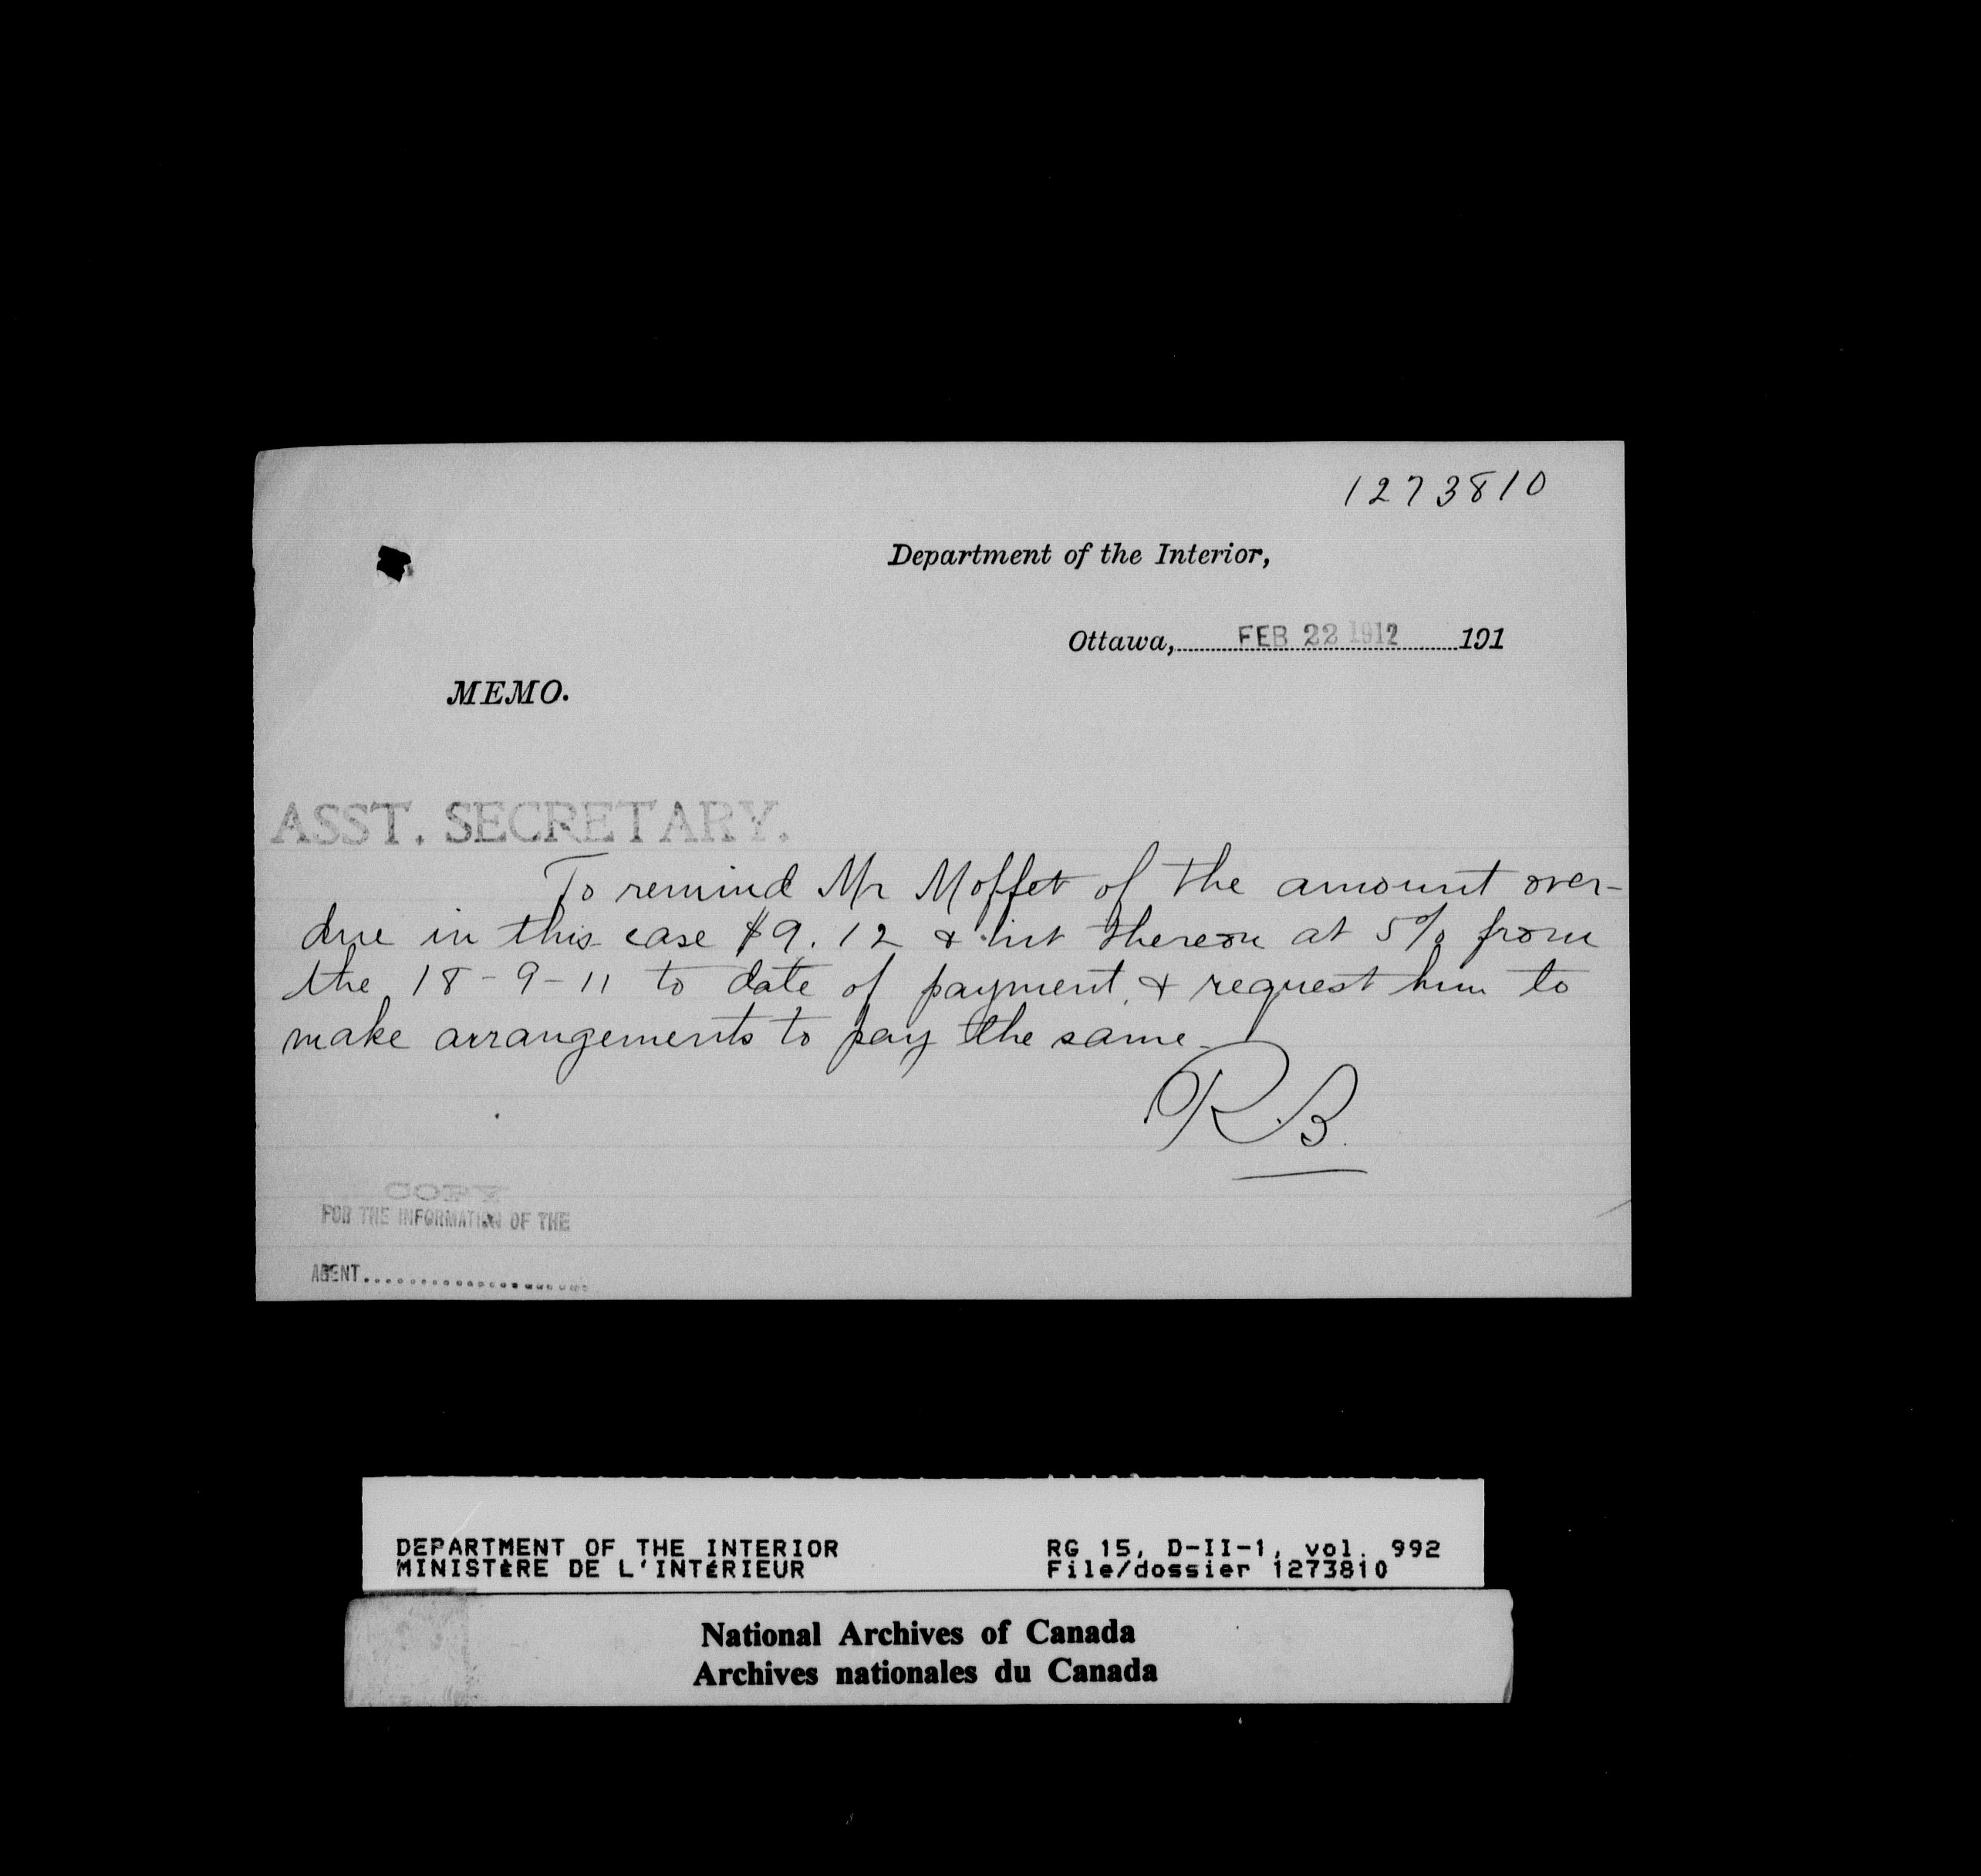 1273810
Department of the Interior,
Ottawa, FEB 22 1912 191
MEMO.
ASST. SECRETARY.
To remind Mr Moffet of the amount over-
due in this case $9.12 & int thereon at 5% from
the 18-9-11 to date of payment, & request him to
make arrangements to pay the same.
R.B.
COPY
FOR THE INFORMATION OF THE
AGENT........................
DEPARTMENT OF THE INTERIOR RG 15, D-II-1, vol. 992
MINISTÈRE DE L'INTÉRIEUR File/dossier 1273810
National Archives of Canada
Archives nationales du Canada